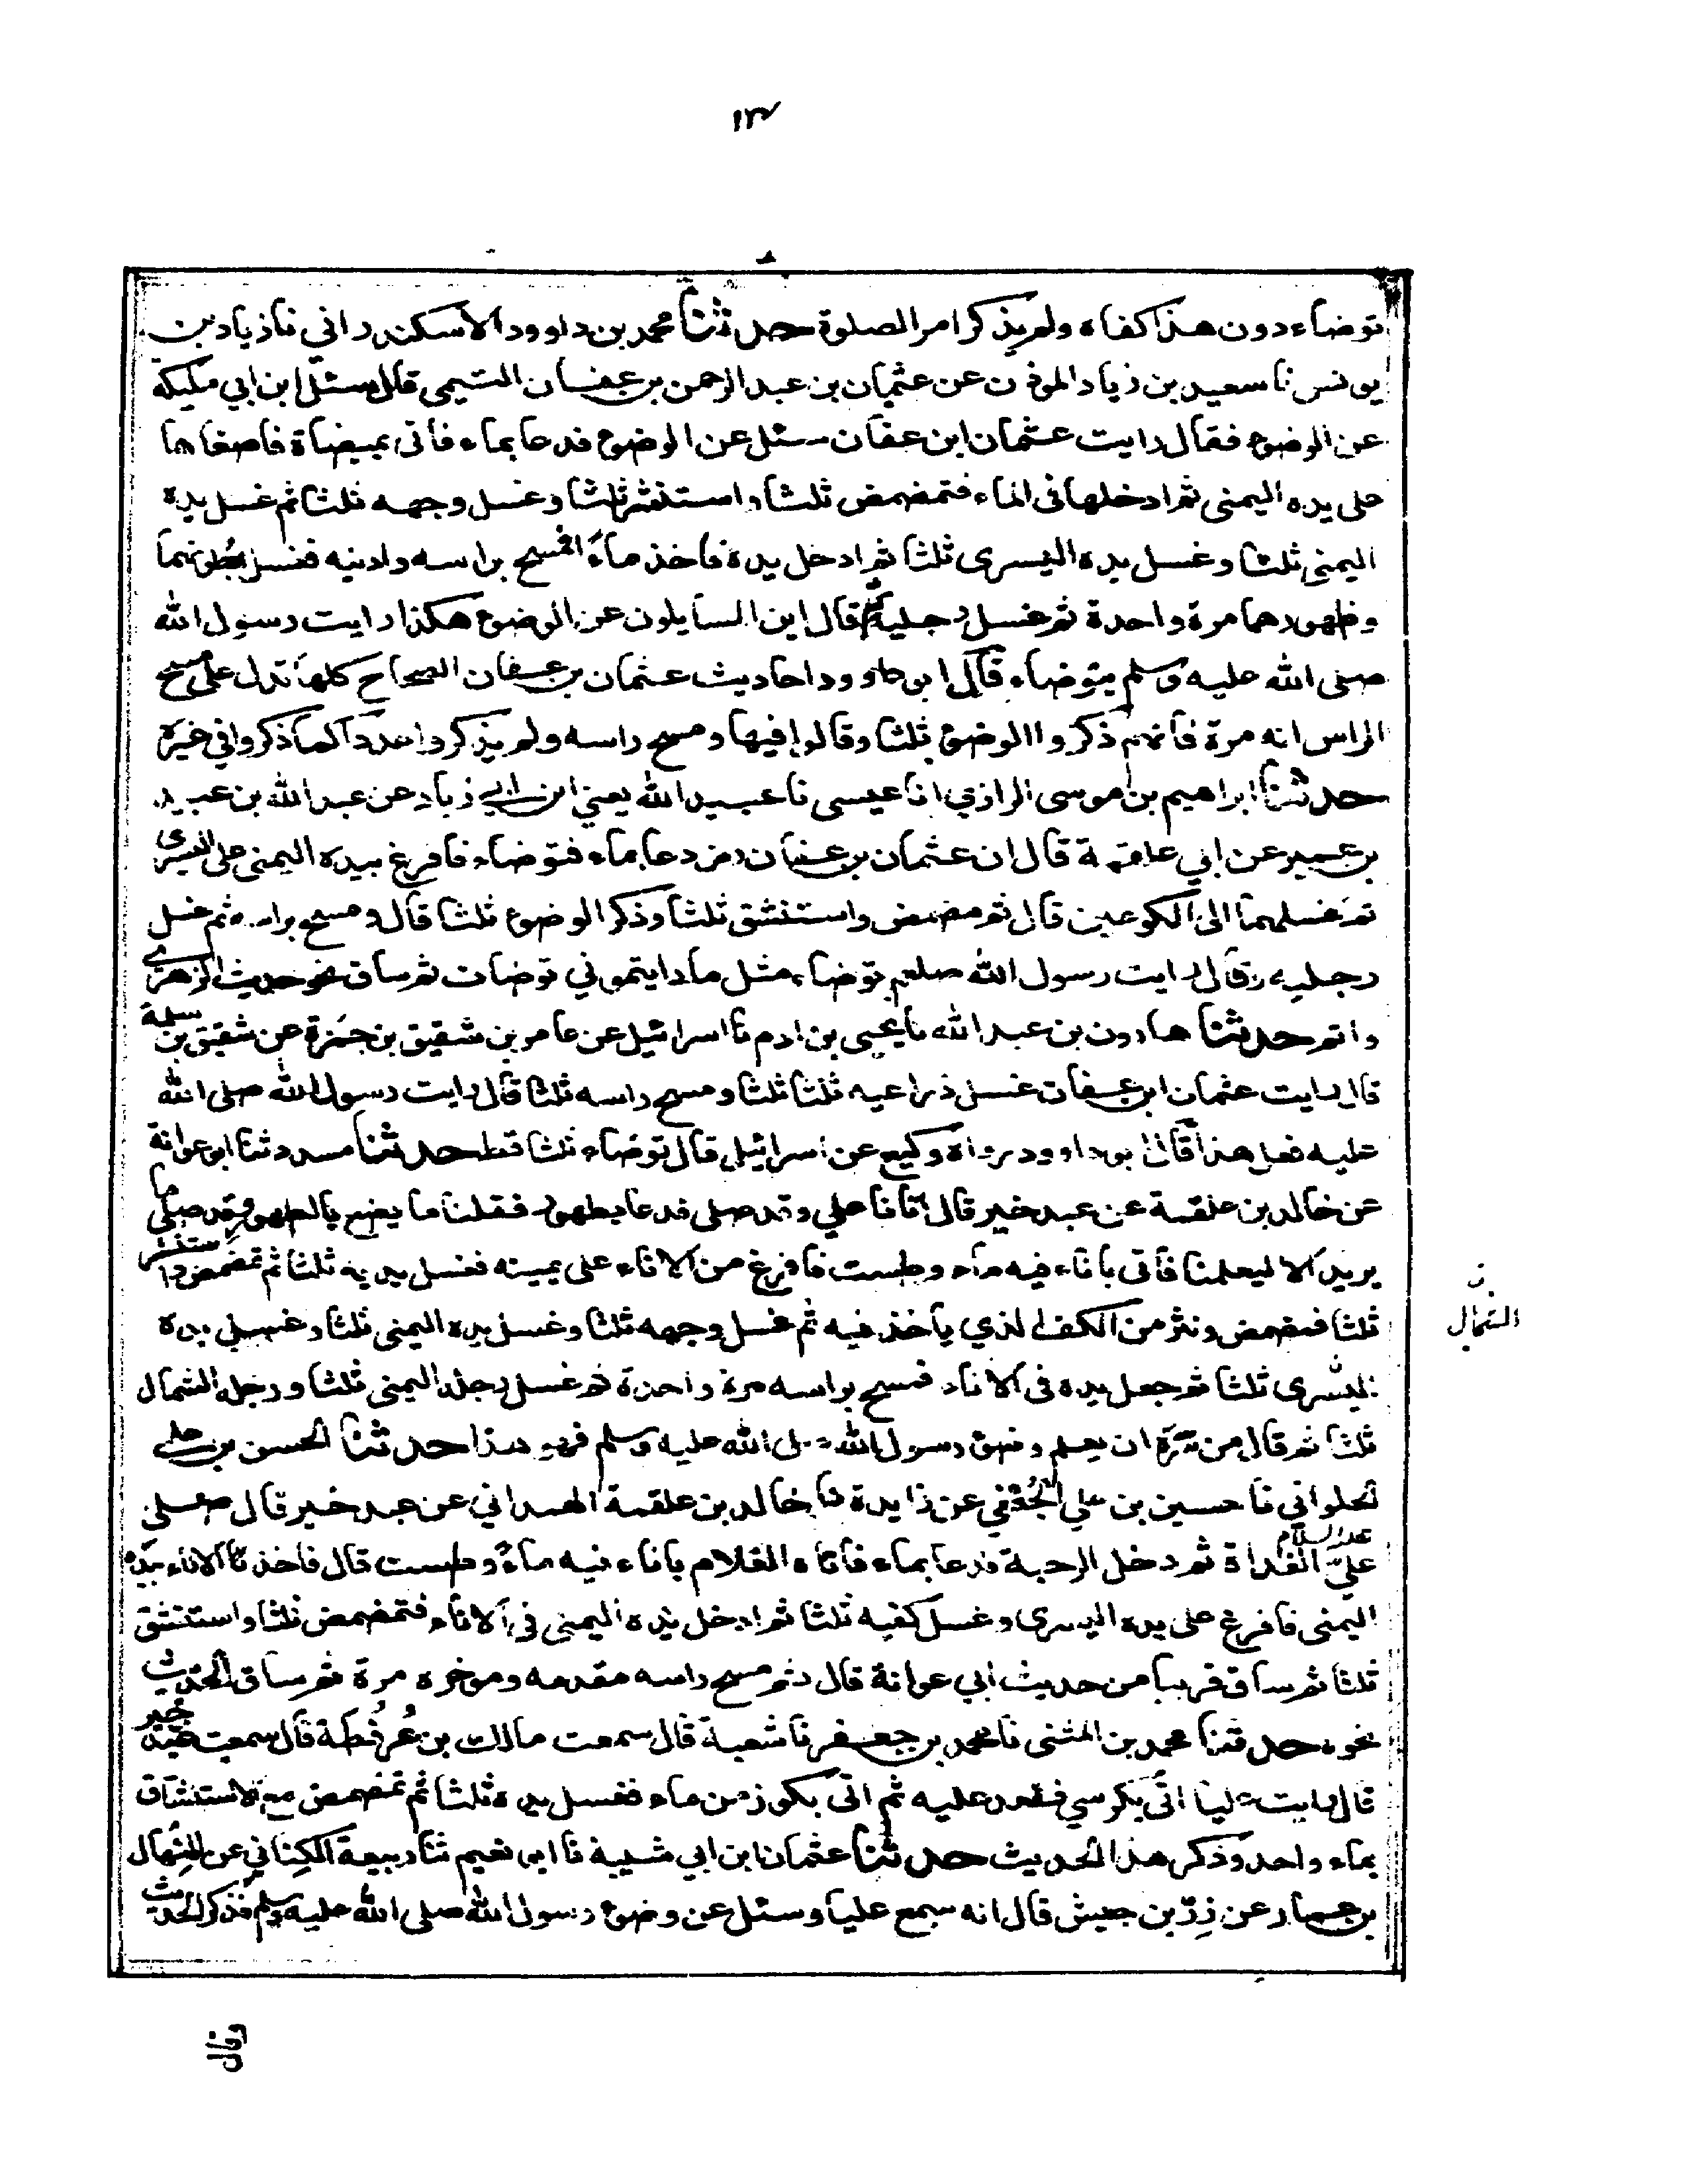 ١٣٧
توضاء دون هذا كفاه ولم يذكر امر الصلوة حدثنا محمد بن داوود الاسكندراني نا زياد بن
يونس نا سعيد بن زياد الموذن عن عثمان بن عبد الرحمن بن عفان التيمي قال سئل ابن ابي مليكة
عن الوضوء فقال رايت عثمان ابن عفان سئل عن الوضوء فدعا بماء فأتى بميضاة فاصغاها
على يده اليمنى ثم ادخلها في الماء فتمضمض ثلثا واستنثر ثلثا وغسل وجهه ثلثا ثم غسل يده
اليمنى ثلثا وغسل يده اليسرى ثلثا ثم ادخل يده فاخذ ماءً فمسح براسه واذنيه فغسل بطونهما
وظهورهما مرة واحدة ثم غسل رجليه ثم قال اين السايلون عن الوضوء هكذا رايت رسول الله
صلى الله عليه وسلم يتوضاء قال ابو داوود احاديث عثمان بن عفان الصحاح كلها تدل على مسح
الراس انه مرة فأنهم ذكروا الوضوء ثلثا وقالوا فيها ومسح راسه ولم يذكروا عددا كما ذكروا في غيره
حدثنا ابراهيم بن موسى الرازي انا عيسى نا عبيد الله يعني ابن ابي زياد عن عبد الله بن عبيد
بن عمير عن ابي علقمة قال ان عثمان بن عفان دعا بماء فتوضاء فافرغ بيده اليمنى على اليسرى
ثم غسلهما الى الكوعين قال ثم مضمض واستنشق ثلثا وذكر الوضوء ثلثا قال ومسح براسه ثم غسل
رجليه وقال رايت رسول الله صلعم توضاء مثل ما رايتموني توضات ثم ساق نحو حديث الزهري
واتم حدثنا هارون بن عبد الله نا يحيى بن ادم نا اسرائيل عن عامر بن شقيق بن جمزة عن شقيق بن سلمة
قال رايت عثمان ابن عفان غسل ذراعيه ثلثا ثلثا ومسح راسه ثلثا قال رايت رسول الله صلى الله
عليه فعل هذا قال ابو داوود رواه وكيع عن اسرائيل قال توضاء ثلثا قط حدثنا مسدد ثنا ابو عوانة
عن خالد بن علقمة عن عبد خير قال اتانا علي وقد صلى فدعا بطهور فقلنا ما يضع بالطهور وقد صلى ما
يريد الا ليعلمنا فأتى بأناء فيه ماء وطست فافرغ من الاناء على يمينه فغسل يديه ثلثا ثم تمضمض واستنثر
ثلثا فمضمض ونثر من الكف الذي يأخذ فيه ثم غسل وجهه ثلثا وغسل يده اليمنى ثلثا وغسل يده
اليسرى ثلثا ثم جعل يده في الاناء فمسح براسه مرة واحدة ثم غسل رجله اليمنى ثلثا ورجله الشمال
ن
الشمال
ثلثا ثم قال من سره ان يعلم وضوء رسول الله صلى الله عليه وسلم فهو هذا حدثنا الحسن بن علي
الحلواني نا حسين بن علي الجُعفي عن زايدة نا خالد بن علقمة الهمداني عن عبد خير قال صلى
علي عليه السلام الغداة ثم دخل الرحبة فدعا بماء فأتاه الغلام بأناء فيه ماءً وطست قال فاخذ الاناء بيده
اليمنى فافرغ على يده اليسرى وغسل كفيه ثلثا ثم ادخل يده اليمنى في الاناء فتمضمض ثلثا واستنشق
ثلثا ثم ساق قريبا من حديث ابي عوانة قال ثم مسح راسه مقدمه وموخره مرة ثم ساق الحديث
نحوه حدثنا محمد بن المثنى نا محمد بن جعفر نا شعبة قال سمعت مالك بن عُرفُطة قال سمعت عبد خير
قال رايت عليا اتى بكرسي فقعد عليه ثم اتى بكوز من ماء فغسل يده ثلثا ثم تمضمض مع الاستنشاق
بماء واحد وذكر هذا الحديث حدثنا عثمان ابن ابي شيبة نا ابو نعيم ثنا ربيعة الكِناني عن المِنهال
بن عمار عن زِرّ بن حبيش قال انه سمع عليا وسئل عن وضوء رسول الله صلى الله عليه وسلم فذكر الحديث
وقال